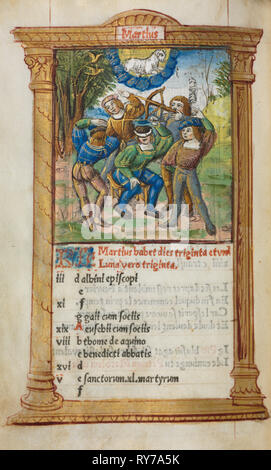 Martius
Martius habet dies triginta et vnū
Luna vero triginta.
iii d albini episcopi
e
xi f
g gaii cum sociis
xix A euschii cum sociis
viii b thome de aquino
c benedicti abbatis
xvi d
v e sanctorum .xl. martyrum
f
alamy
Image ID: RY7A5K
www.alamy.com